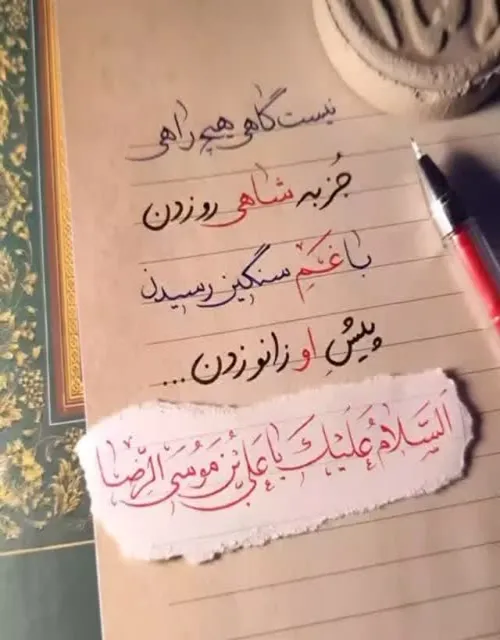 نیست گاهی هیچ راهی
جُز به شاهی رو زدن
با غَمِ سنگین رسیدن
پیشِ او زانو زدن ...
اَلسَّلامُ عَلَیْكَ یا عَلِيِّ بْنِ مُوسَی الرِّضا